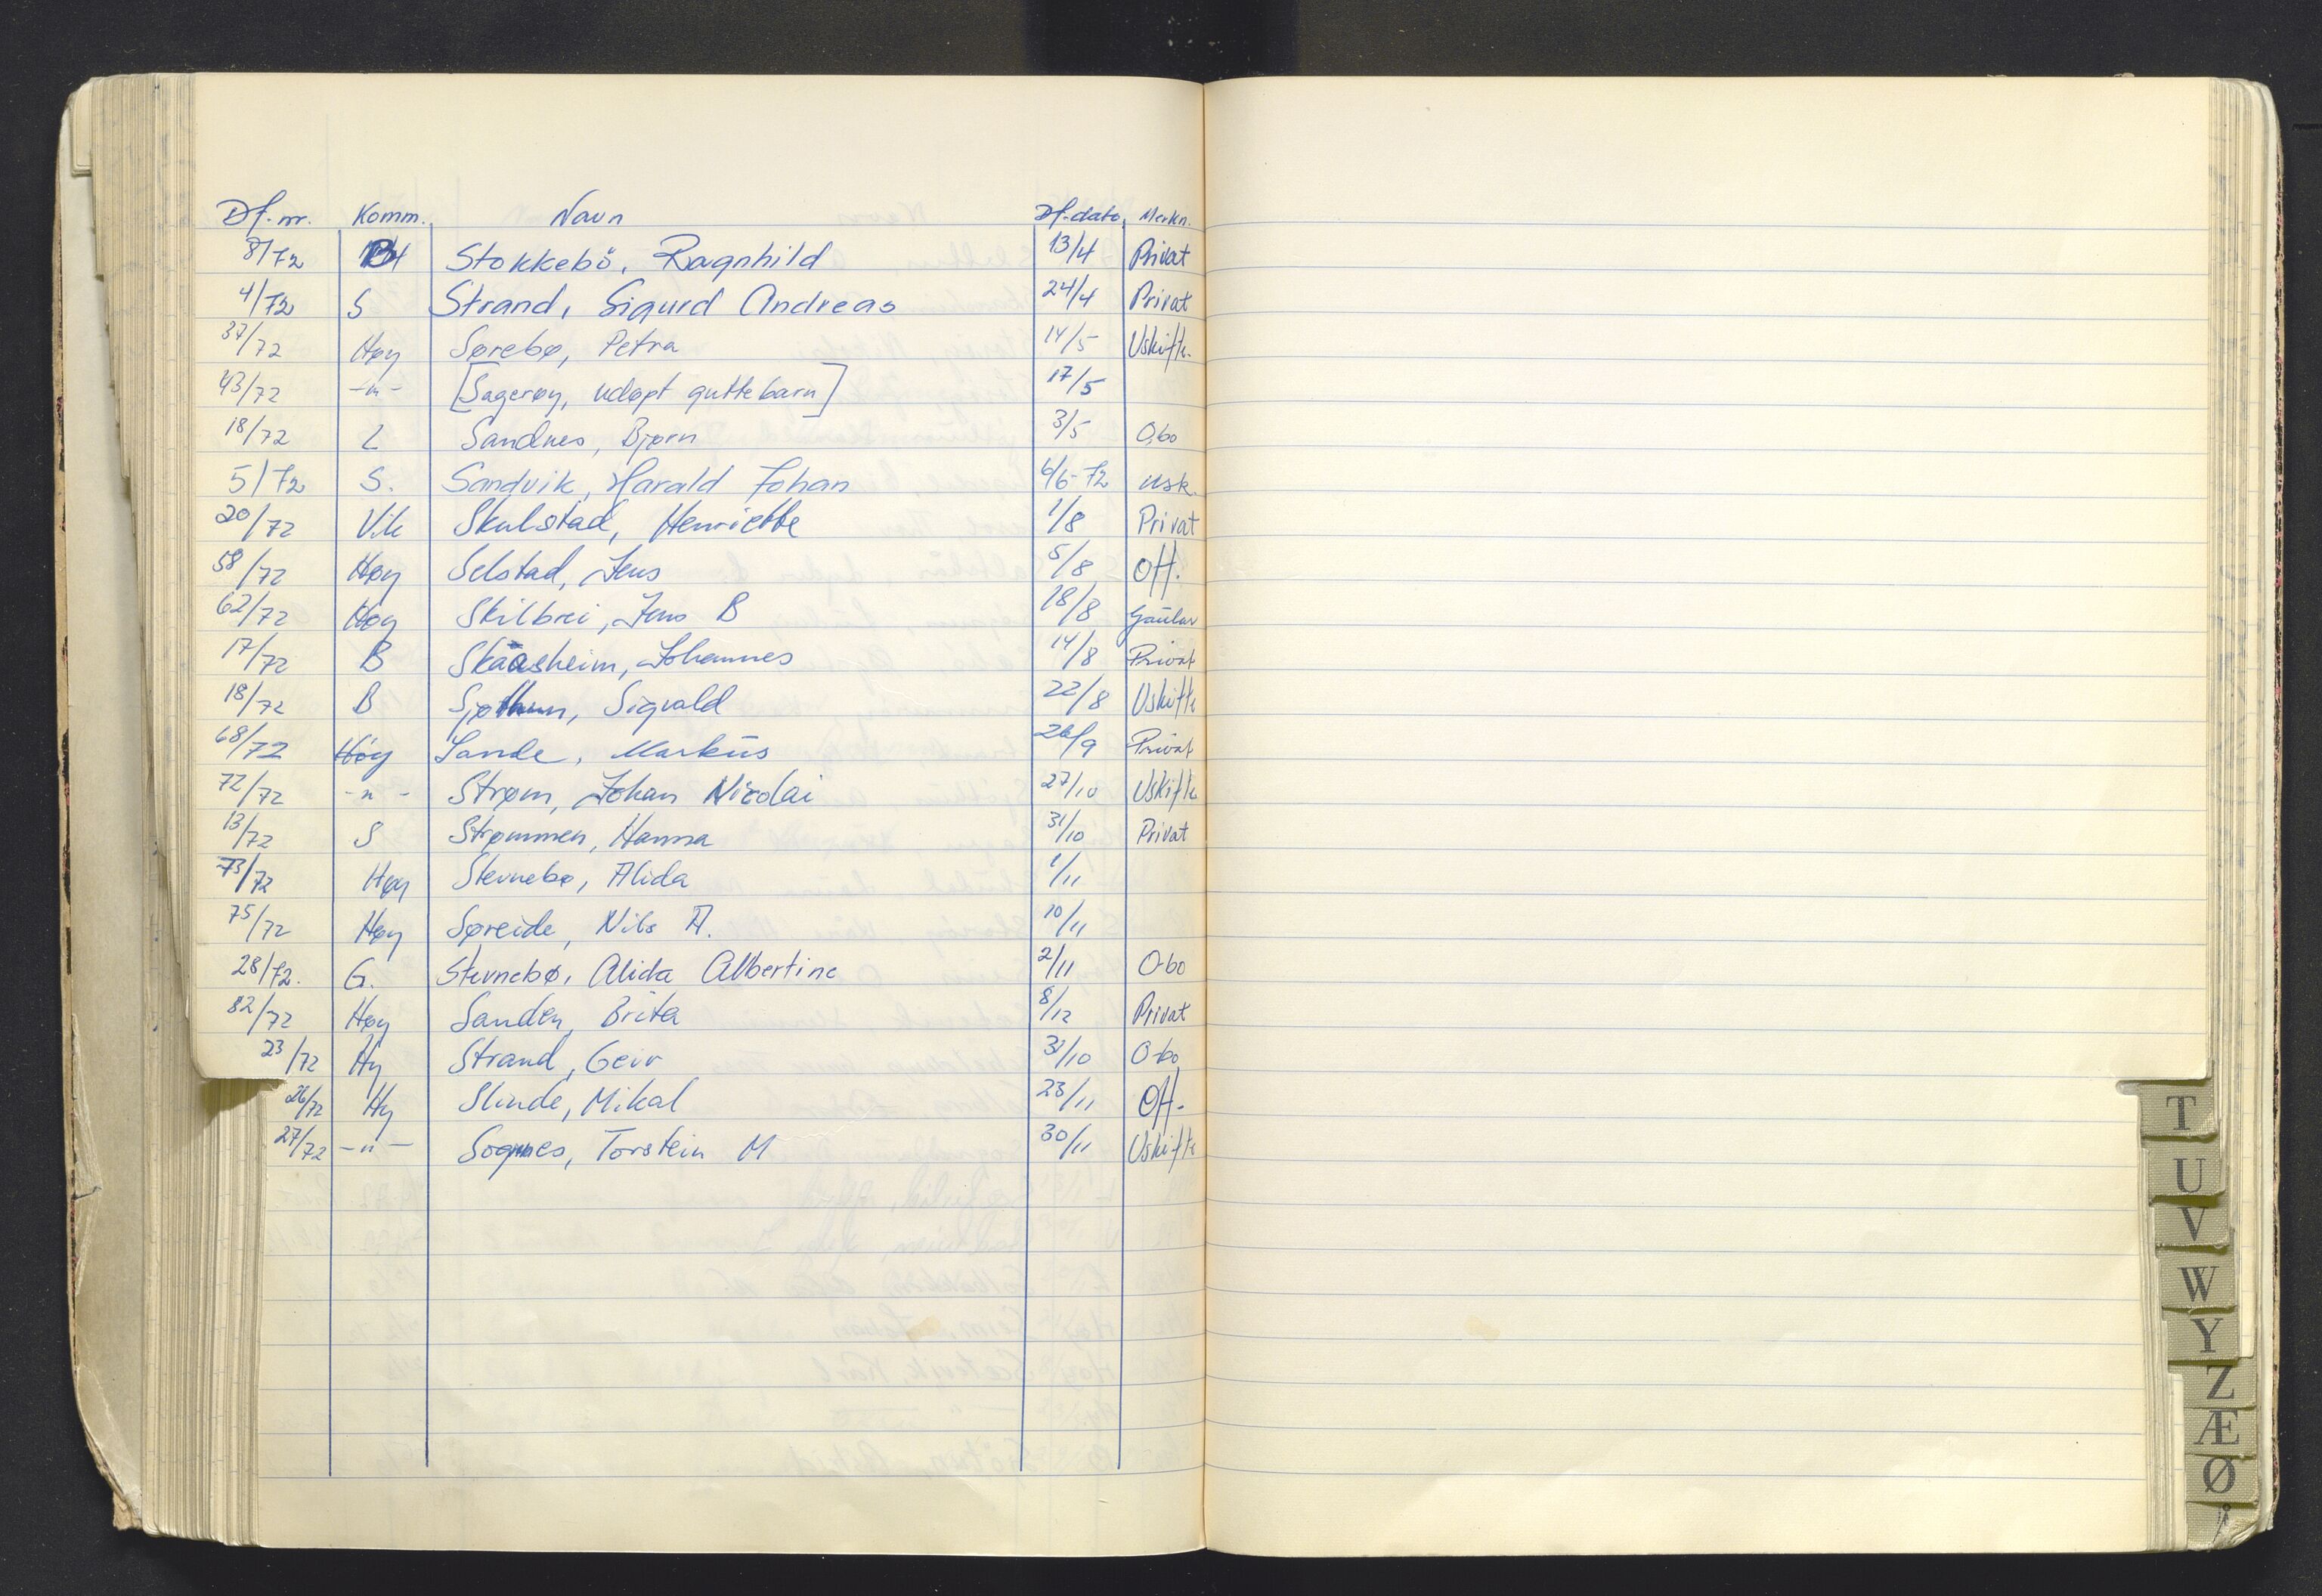 Df.nr. Komm. Navn Df-dato, Merkn.
8/72 B Stokkebö, Ragnhild 13/4 Privat
4/72 S Strand, Sigurd Andreas 24/4 Privat
37/72 Høy Sørebø, Petra 14/5 Uskifte.
43/72 -"- [Sagerøy, udøpt guttebarn] 17/5
18/72 L Sandnes, Bjørn 3/5 O.bo
5/72 S. Sandvik, Harald Johan 6/6-72 Usk.
20/72 Vik Skulstad, Henriette 1/8 Privat
58/72 Høy Selstad, Jens 5/8 Off.
62/72 Høy Skilbrei, Jens B 18/8 Gaular
17/72 B Skåasheim, Johannes 14/8 Privat
18/72 B Sjøthun, Sigvald 22/8 Uskifte
68/72 Høy Sande, Markus 26/9 Privat
72/72 -"- Strøm, Johan Nicolai 27/10 Uskifte
13/72 S Strømmen, Hanna 31/10 Privat
73/72 Høy Stevnebø, Alida 1/11
75/72 Høy Søreide, Nils A. 10/11
28/72. G. Stevnebø, Alida Albertine 2/11 O-bo
82/72 Høy Sanden, Brita 8/12 Privat
23/72 Hy Strand, Geir 31/10 O-bo
26/72 Hy Slinde, Mikal 23/11 Off.
27/72 -"- Sognnes, Torstein M 30/11 Uskifte
T
U
V
W
Y
Z
Æ
Ø
Å